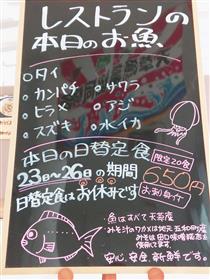 レストランの
本日のお魚
○タイ
○カンパチ ○サワラ
○ヒラメ ○アジ
○スズキ ○水イカ
本日の日替定食
限定20食
23日～26日の期間
650円
日替定食はお休みです
お刺身付
・魚はすべて天草産
・みそ汁のワカメは地元 五和町産
みそは
使用してます。
安心、安全、新鮮です。